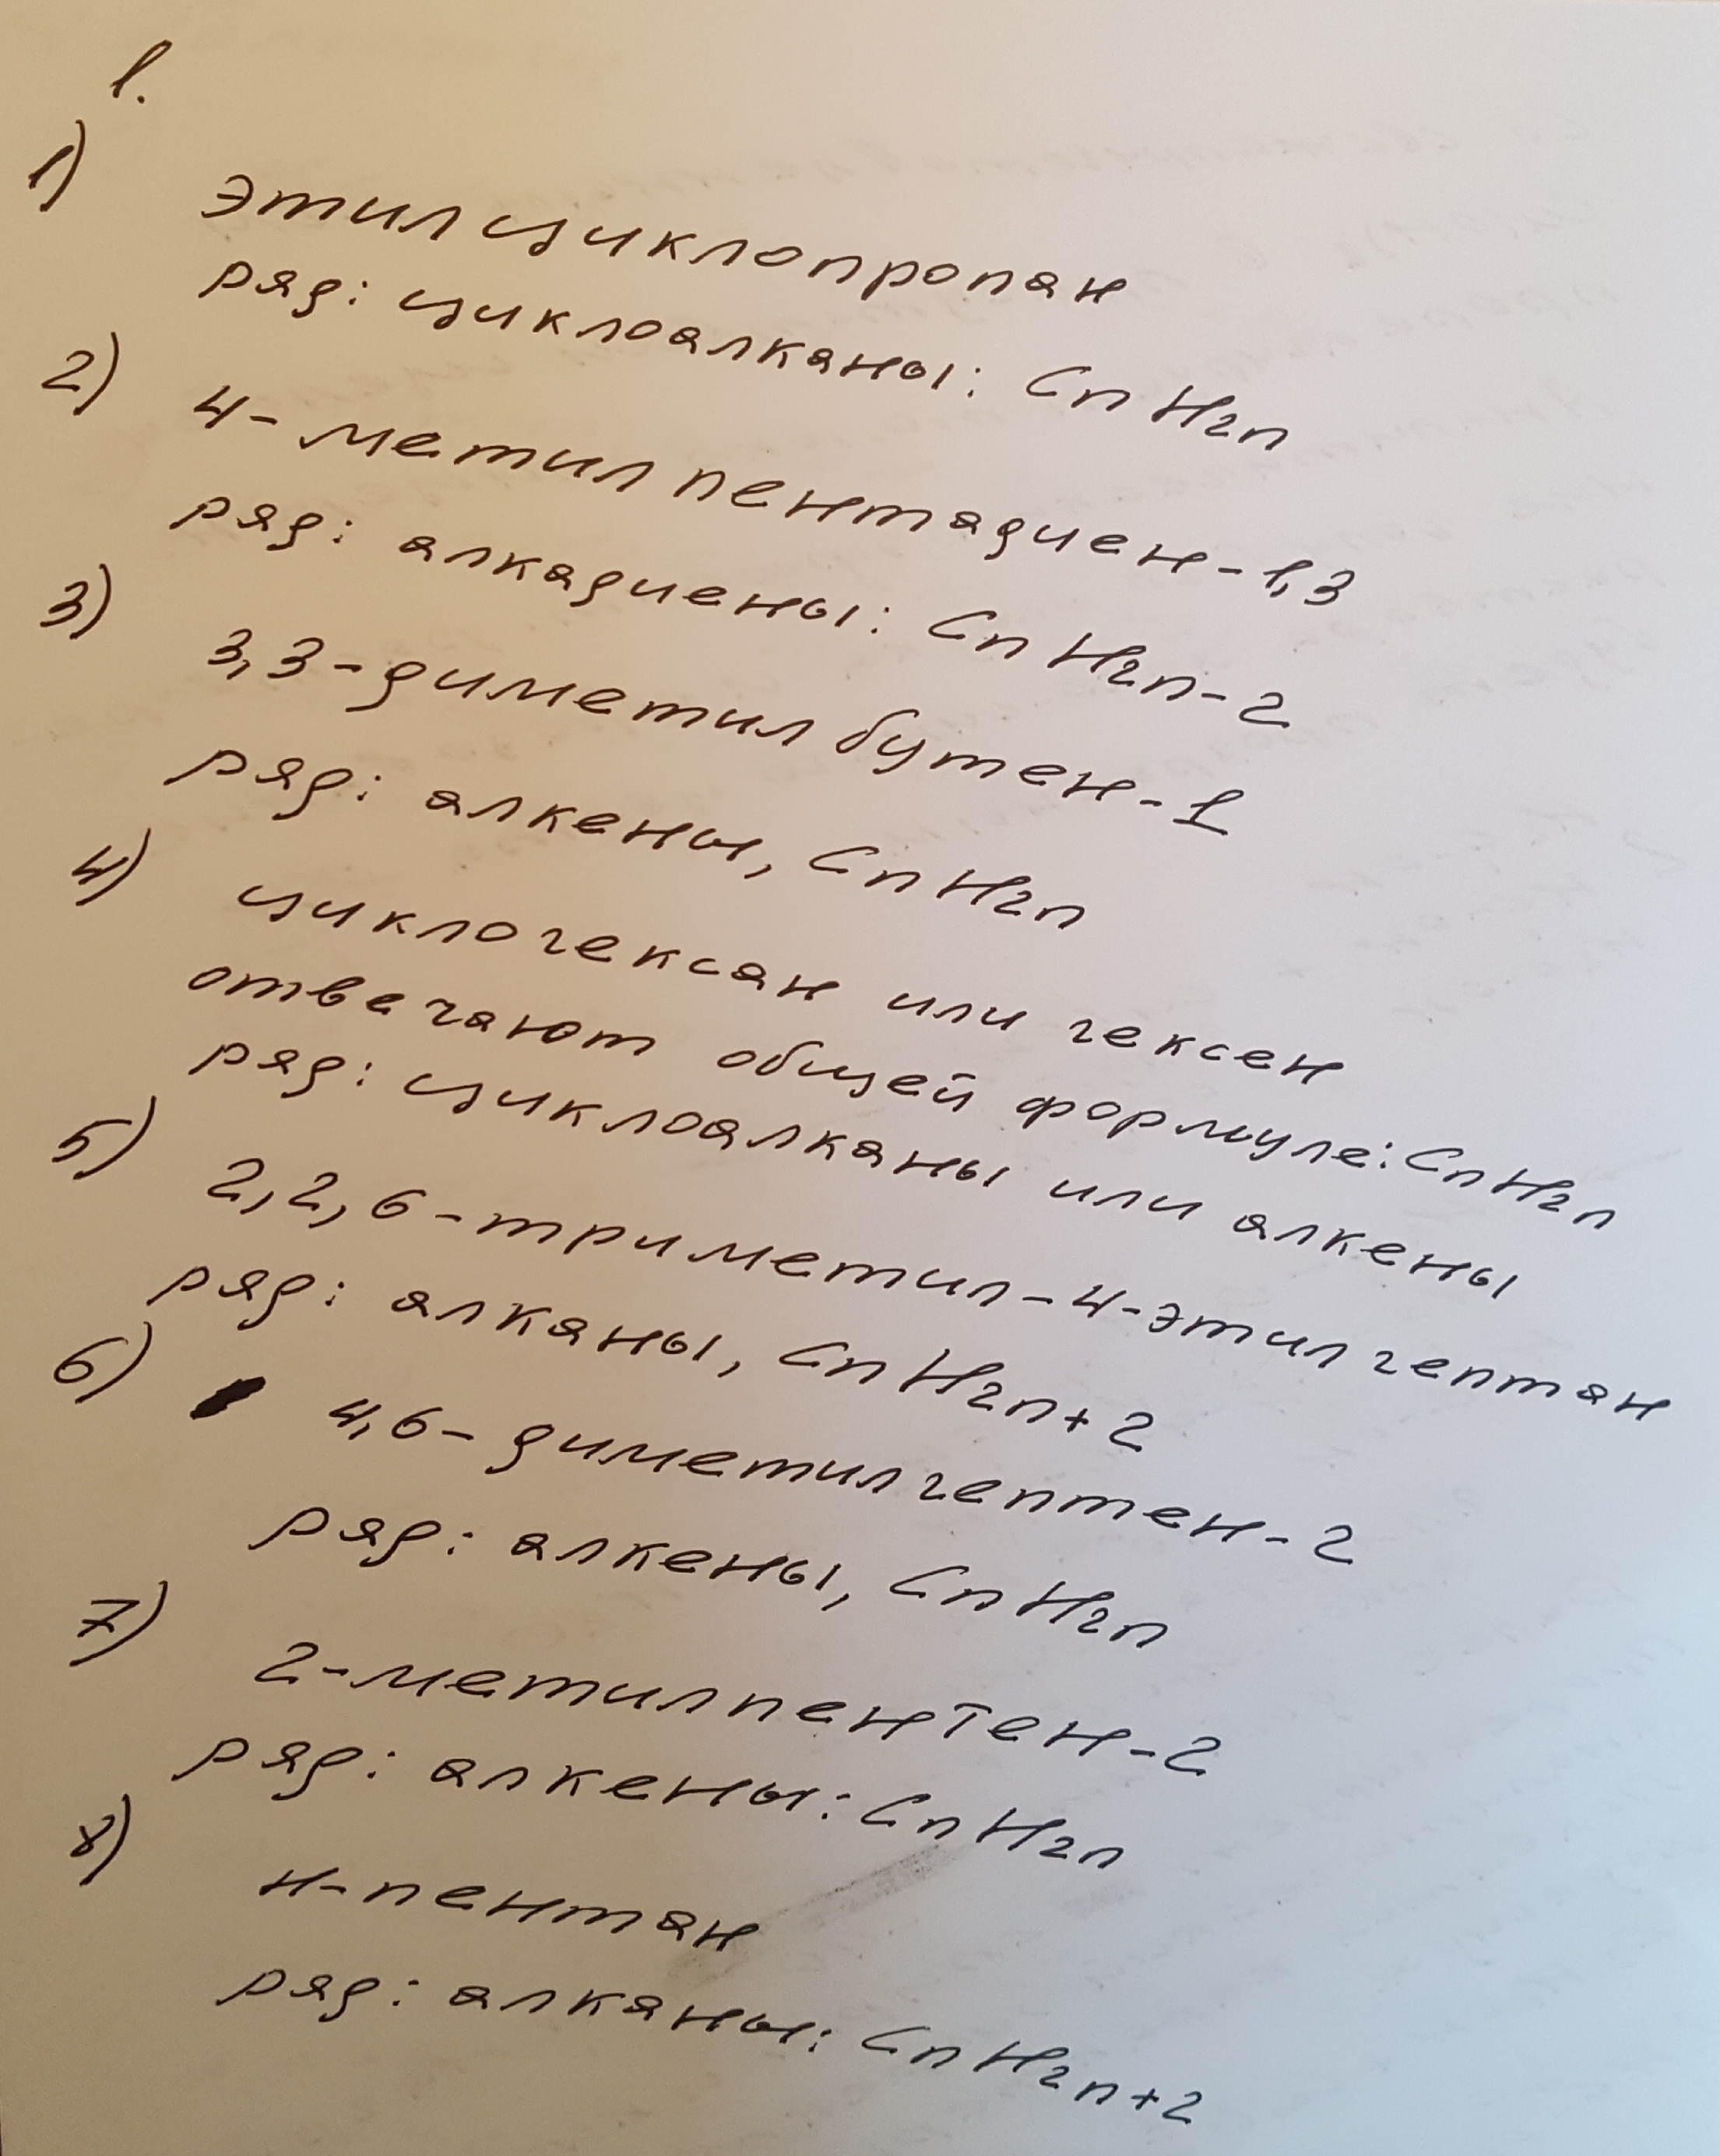 1.
1) этилциклопропан
ряд: циклоалканы: CnH2n
2) 4-метилпентадиен-1,3
ряд: алкадиены: CnH2n-2
3) 3,3-диметилбутен-1
ряд: алкены, CnH2n
4) циклогексан или гексен
отвечают общей формуле: CnH2n
ряд: циклоалканы или алкены
5) 2,2,6-триметил-4-этилгептан
ряд: алканы, CnH2n+2
6) 4,6-диметилгептен-2
ряд: алкены, CnH2n
7) 2-метилпентен-2
ряд: алкены: CnH2n
8) н-пентан
ряд: алканы: CnH2n+2